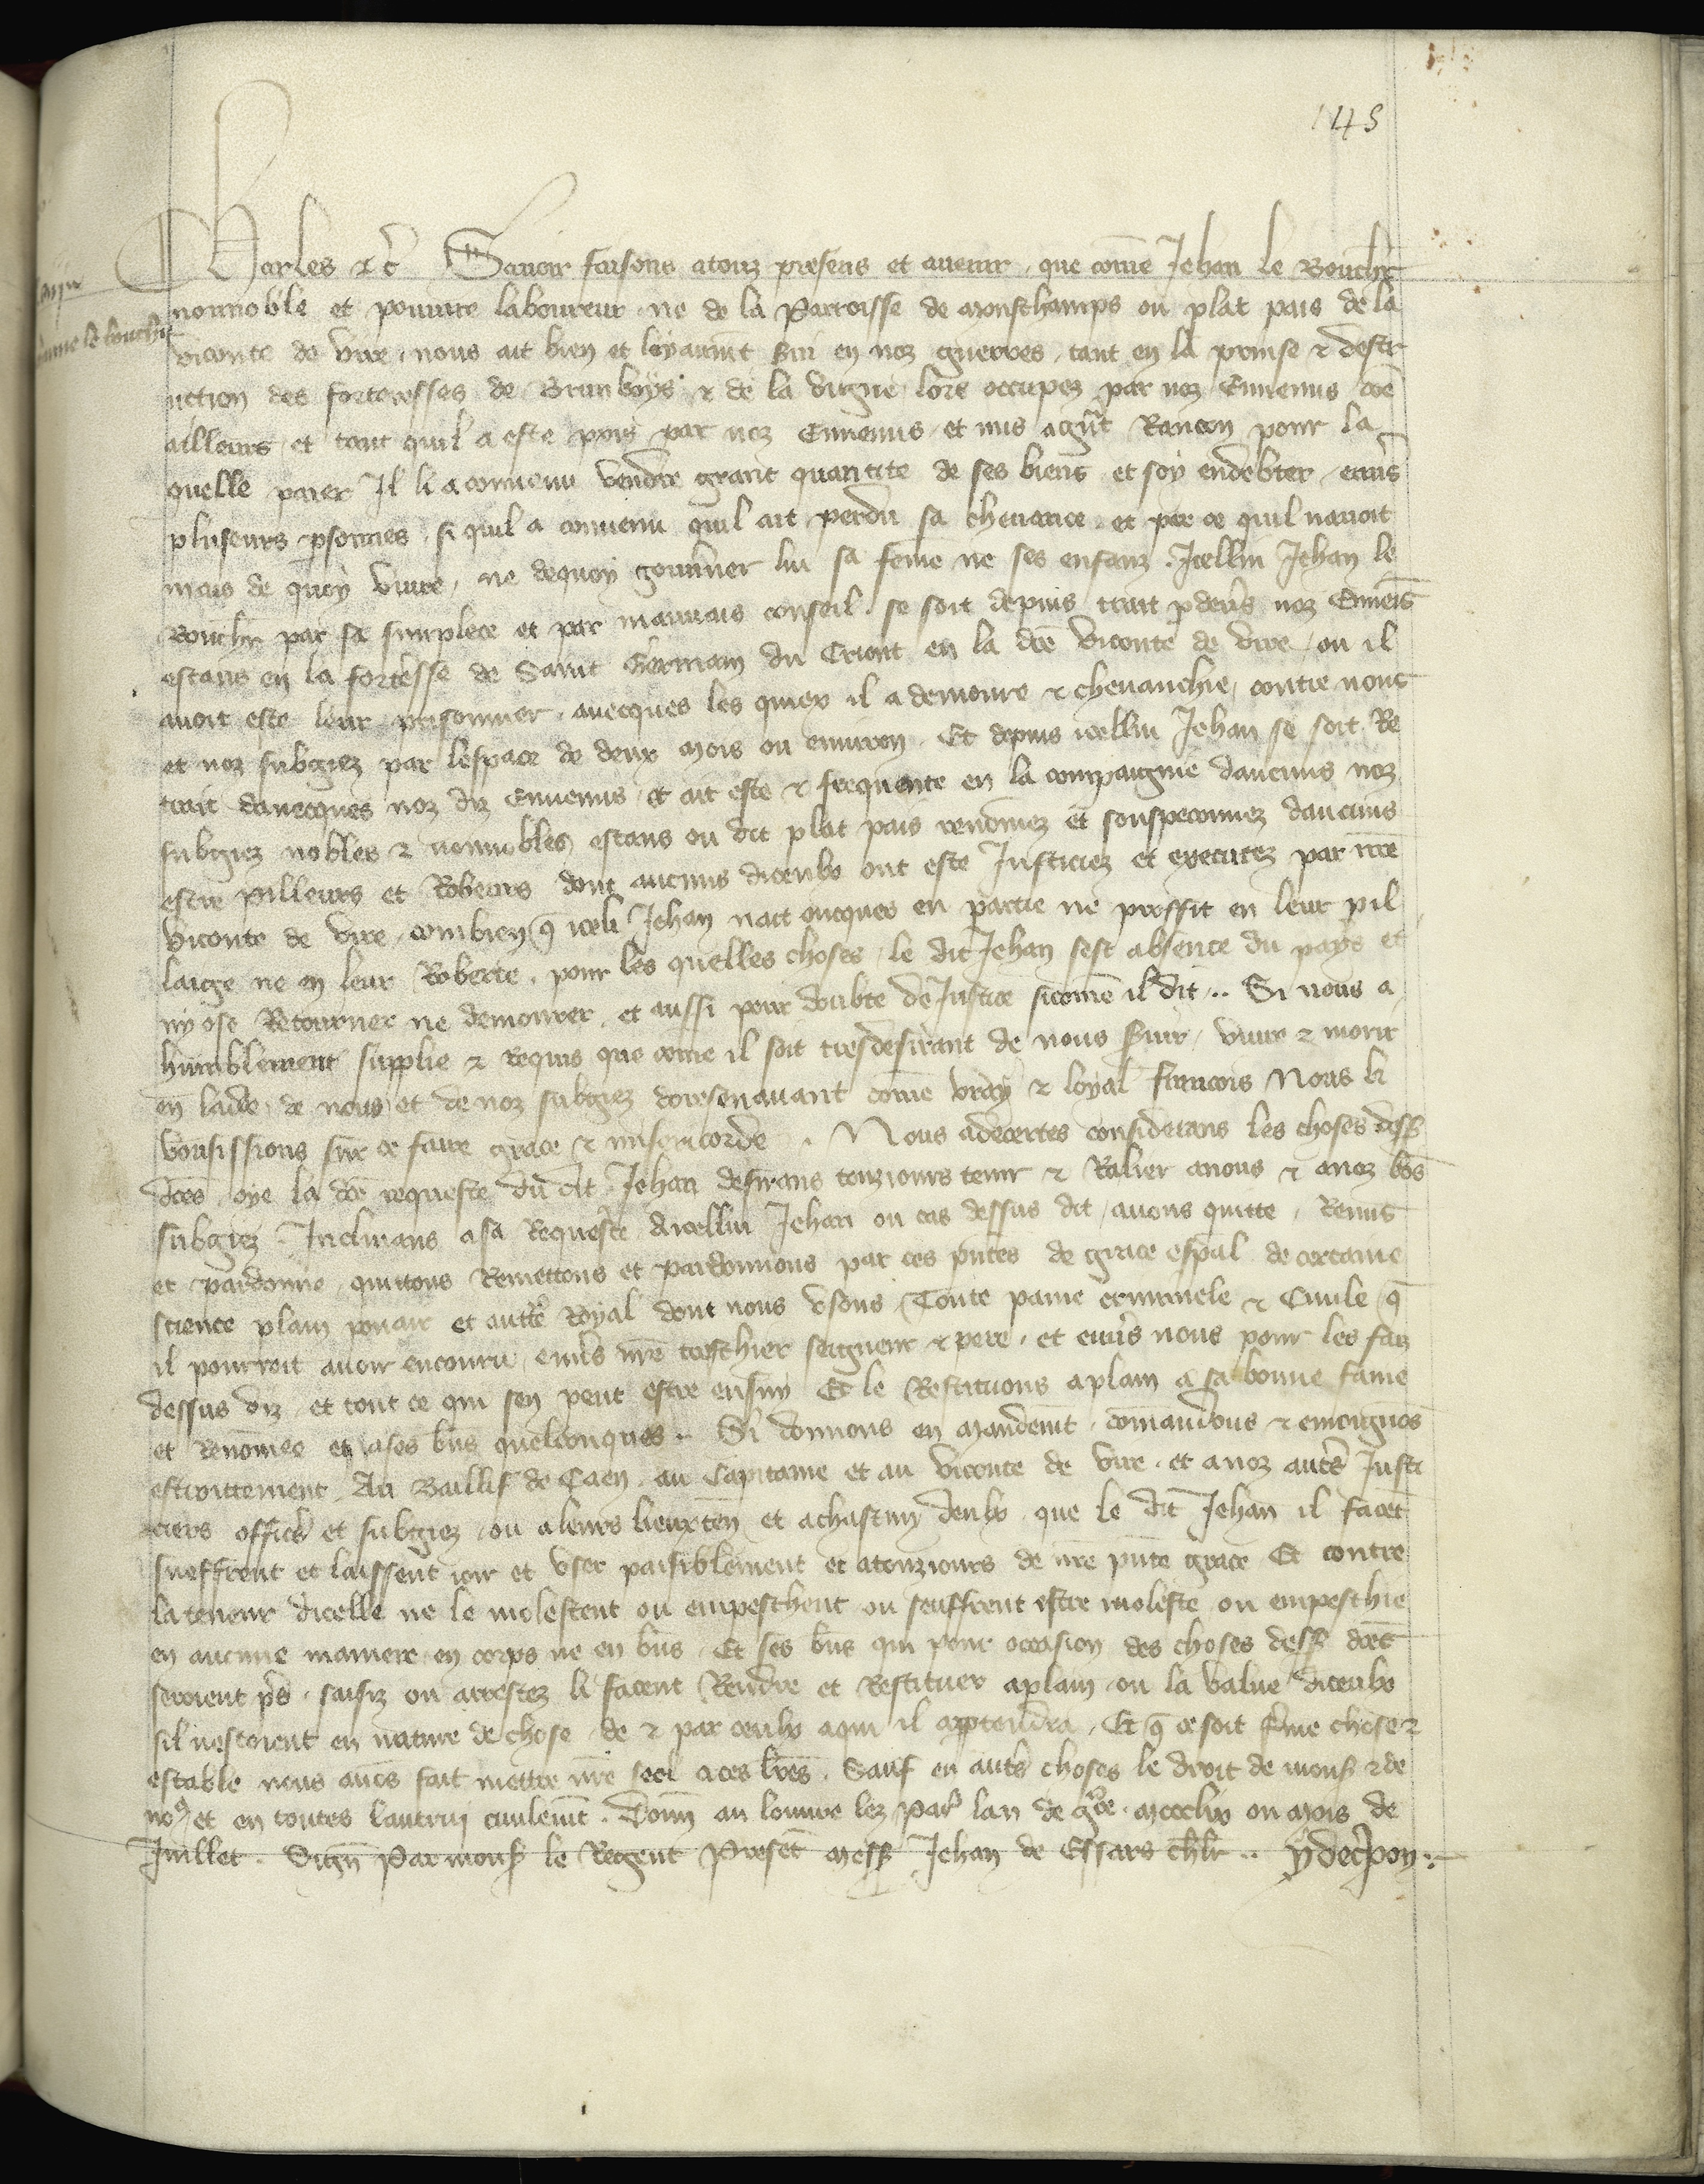 145
Charles etc̄ Savoir faisons a touz presens et avenir, que com̄e Jehan le Bouch̄r
nonnoble et pouvre laboureur ne de la Parroisse de Monschamps ou plat pais de la
viconte de vire, nous ait bien et loyaum̄t s̄vi en noz guerres, tant en la prinse & destr
uction des forteresses de Brunboys & de la vigne lors occupez par noz Ennemis com̄e
ailleurs et tant quil a este pris par noz Ennemis et mis a gn̄t Rancon pour la
quelle paier Il li a convenu vendre grant quantite de ses biens et soy endebter envs̄
pluseurs p̄sonnes si quil a convenu quil ait perdu sa chevance et par ce quil navoit
mais de quoy vivre, ne dequoy gouv̄ner lui sa fem̄e ne ses enfanz Icellui Jehan le
Bouch̄r par sa simplece et par mauvais conseil se soit depuis trait p̄devs̄ noz En̄emis
estans en la fort̄esse de Saint Germain du Crioult en la dc̄e viconte de vire, ou il
avoit este leur prisonnier, avecques les quiex il a demoure & chevauchie, contre nous
et noz subgiez par lespace de deux mois ou environ Et depuis icellui Jehan se soit Re
trait davecques noz diz Ennemis et ait este & frequente en la compaignie daucuns noz
subgiez nobles & nonnobles estans ou dit plat pais renom̄ez et souspeconnez daucuns
estre pilleurs et Robeurs dont aucuns diceulx ont este Justiciez et executez par nr̄e
viconte de vire, combien q̄ iceli Jehan nait oncques eu partie ne proffit en leur pil
laige ne en leur Roberie, pour les quelles choses le dit Jehan sest absente du pays et
ny ose Retourner ne demourer, et aussi pour doubte de Justice sicom̄e il dit.. Si nous a
humblement supplie & requis que com̄e il soit tresdesirant de nous s̄vir, vivre & morir
en laide de nous et de noz subgiez doresenavant com̄e vray & loyal francois Nous li
vousissions sur ce faire grace & misericorde. Nous adecertes considerans les choses dess
dc̄es, oye la dc̄e requeste du dit Jehan desirans touzjours tenir & Ralier a nous & a noz bōs
subgiez. Inclinans a sa Requeste A icellui Jehan ou cas dessus dit, avons quitte, Remis
et pardonne, quittons Remettons et pardonnons par ces p̄ntes de grace esp̄al de certaine
science plain povair et auttē Royal dont nous usons, Toute paine criminele & Civile q̄
il pourroit avoir encouru, envs̄ nr̄e treschier seigneur & pere, et envs̄ nous pour les faiz
dessus diz, et tout ce qui sen peut estre ensuy Et le Restituons a plain a sa bonne fame
et Renom̄ee et a ses bn̄s quelconques. Si donnons en mandem̄t, com̄andons & enioignōs
estroittement Au Baillif de Caen, au Capitaine et au viconte de vire, et a noz autr̄s Justi
ciers offic̄rs et subgiez, ou a leurs lieuxten̄ et a chascun deulx, que le dit Jehan il facēt
sueffrent et laissent ioir et user paisiblement et a touzjours de nr̄e p̄nte grace Et contre
la teneur dicelle ne le molestent ou empeschent ou seuffrent estre moleste ou empeschie
en aucune maniere en corps ne en bn̄s Et ses bn̄s qui pour occasion des choses dess dc̄es
seroient p̄s, saisiz ou arrestez li facent Rendre et Restituer a plain ou la value diceulx
sil nestoient en nature de chose, de & par ceulx a qui il app̄tendra, Et q̄ ce soit f̄me chose &
estable nous avōs fait mettre nr̄e seel a ces lr̄es. Sauf en autr̄s choses le droit de mons̄ & de
no9 et en toutes lautrui civilem̄t. Donn̄ au louvre lez par̄ lan de gr̄ce mccclix ou mois de
Juillet. Sign̄ Par mons̄ le Regent Presēt mess̄ Jehan de Essars ch̄lr.. Ydrec̄pon:.